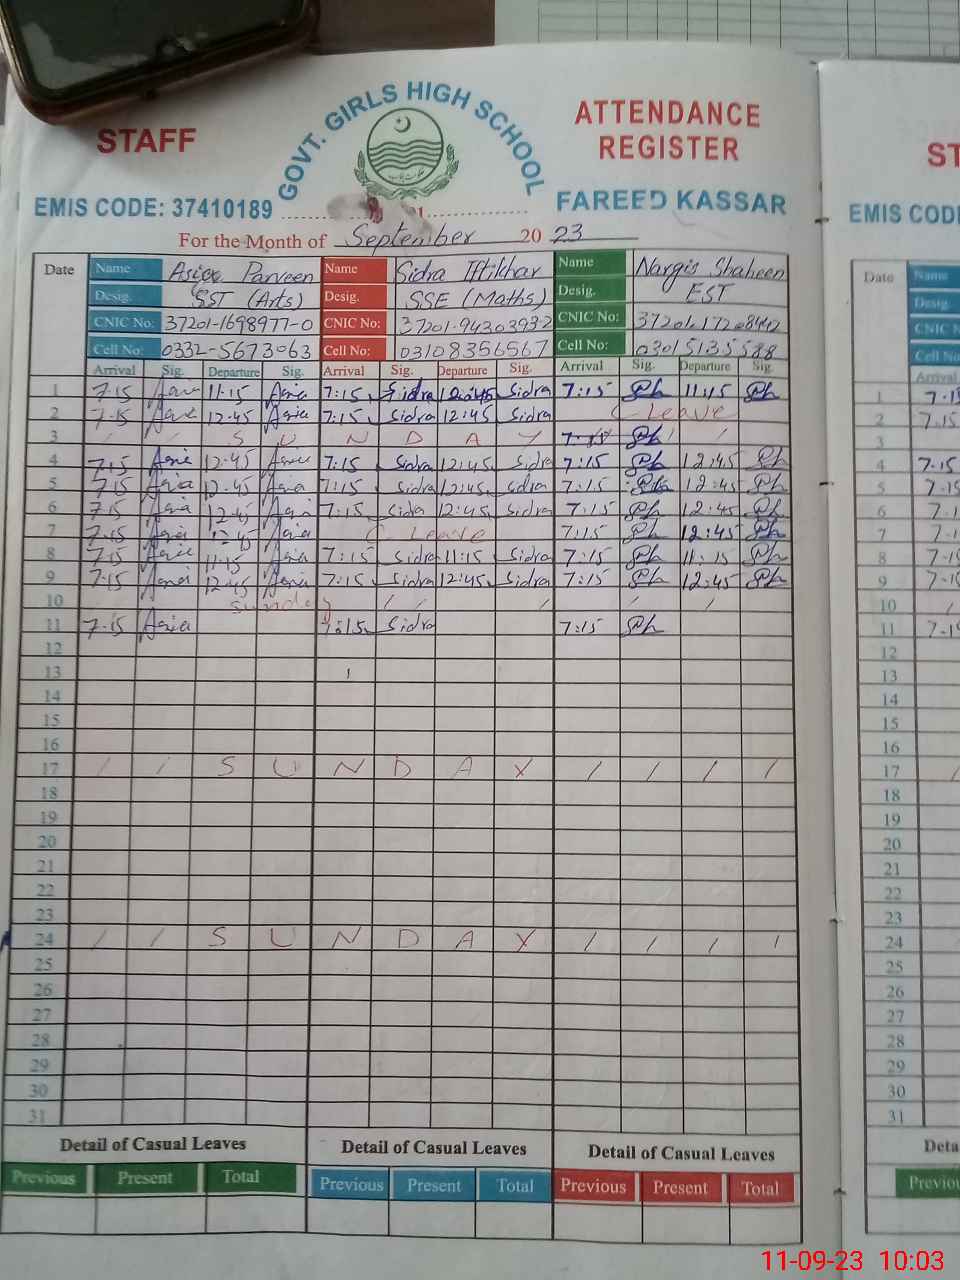 STAFF
GOVT. GIRLS HIGH SCHOOL
ATTENDANCE REGISTER
EMIS CODE: 37410189
FAREED KASSAR
For the Month of September 2023
Date Name Asia Parveen Name Sidra Iftikhar Name Nargis Shaheen
Desig. SST (Arts) Desig. SSE (Maths) Desig. EST
CNIC No: 37201-1698977-0 CNIC No: 37201-94303932 CNIC No:
Cell No: 0332-5673063 Cell No: 03108356567 Cell No: 03015135588
Arrival Sig. Departure Sig. Arrival Sig. Departure Sig. Arrival Sig. Departure Sig.
1 7-15 Asia 11-15 Asia 7:15 Sidra Sidra 7:15 Sh 11:15 Sh
2 7-15 Asia 12-45 Asia 7:15 Sidra 12:45 Sidra C Leave
3 / / S U N D A Y Sh / /
4 7-15 Asia 12-45 Asia 7:15 Sidra 12:45 Sidra 7:15 Sh 12:45 Sh
5 7-15 Asia 12-45 Asia 7:15 Sidra 12:45 Sidra 7:15 Sh 12:45 Sh
6 7-15 Asia 12-45 Asia 7:15 Sidra 12:45 Sidra 7:15 Sh 12:45 Sh
7 7-15 Asia 12-45 Asia C Leave 7:15 Sh 12:45 Sh
8 7-15 Asia 11-15 Asia 7:15 Sidra 11:15 Sidra 7:15 Sh 11:15 Sh
9 7-15 Asia 12-45 Asia 7:15 Sidra 12:45 Sidra 7:15 Sh 12:45 Sh
10 Sunday / / / / /
11 7-15 Asia 7:15 Sidra 7:15 Sh
12
13
14
15
16
17 / / S U N D A Y / / / /
18
19
20
21
22
23
24 / / S U N D A Y / / / /
25
26
27
28
29
30
31
Detail of Casual Leaves Detail of Casual Leaves Detail of Casual Leaves
Previous Present Total Previous Present Total Previous Present Total
ST
EMIS CODE
Date Name
Desig.
CNIC N
Cell No:
Arrival
1 7-15
2 7-15
3
4 7-15
5
6
7
8
9
10 /
11
12
13
14
15
16
17 /
18
19
20
21
22
23
24 /
25
26
27
28
29
30
31
Deta
Previou
11-09-23 10:03